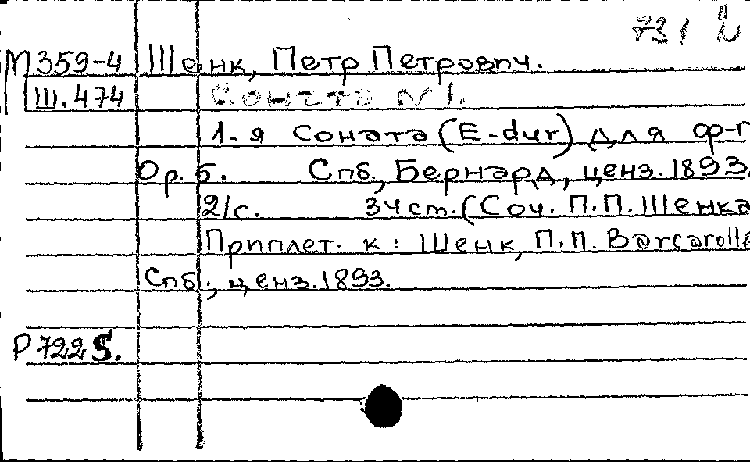 731
М 359-4 Шенк, Петр Петрович.
Ш.474 Соната №1.
1-я Соната (E-dur) для ф-п
Ор. б. Спб, Бернард, ценз. 1893.
21 с. 34 cm. (Соч. П.П. Шенка
Приплет. к: Шенк, П.П. Barcarolle
Спб, ценз. 1893.
Р 722 5.